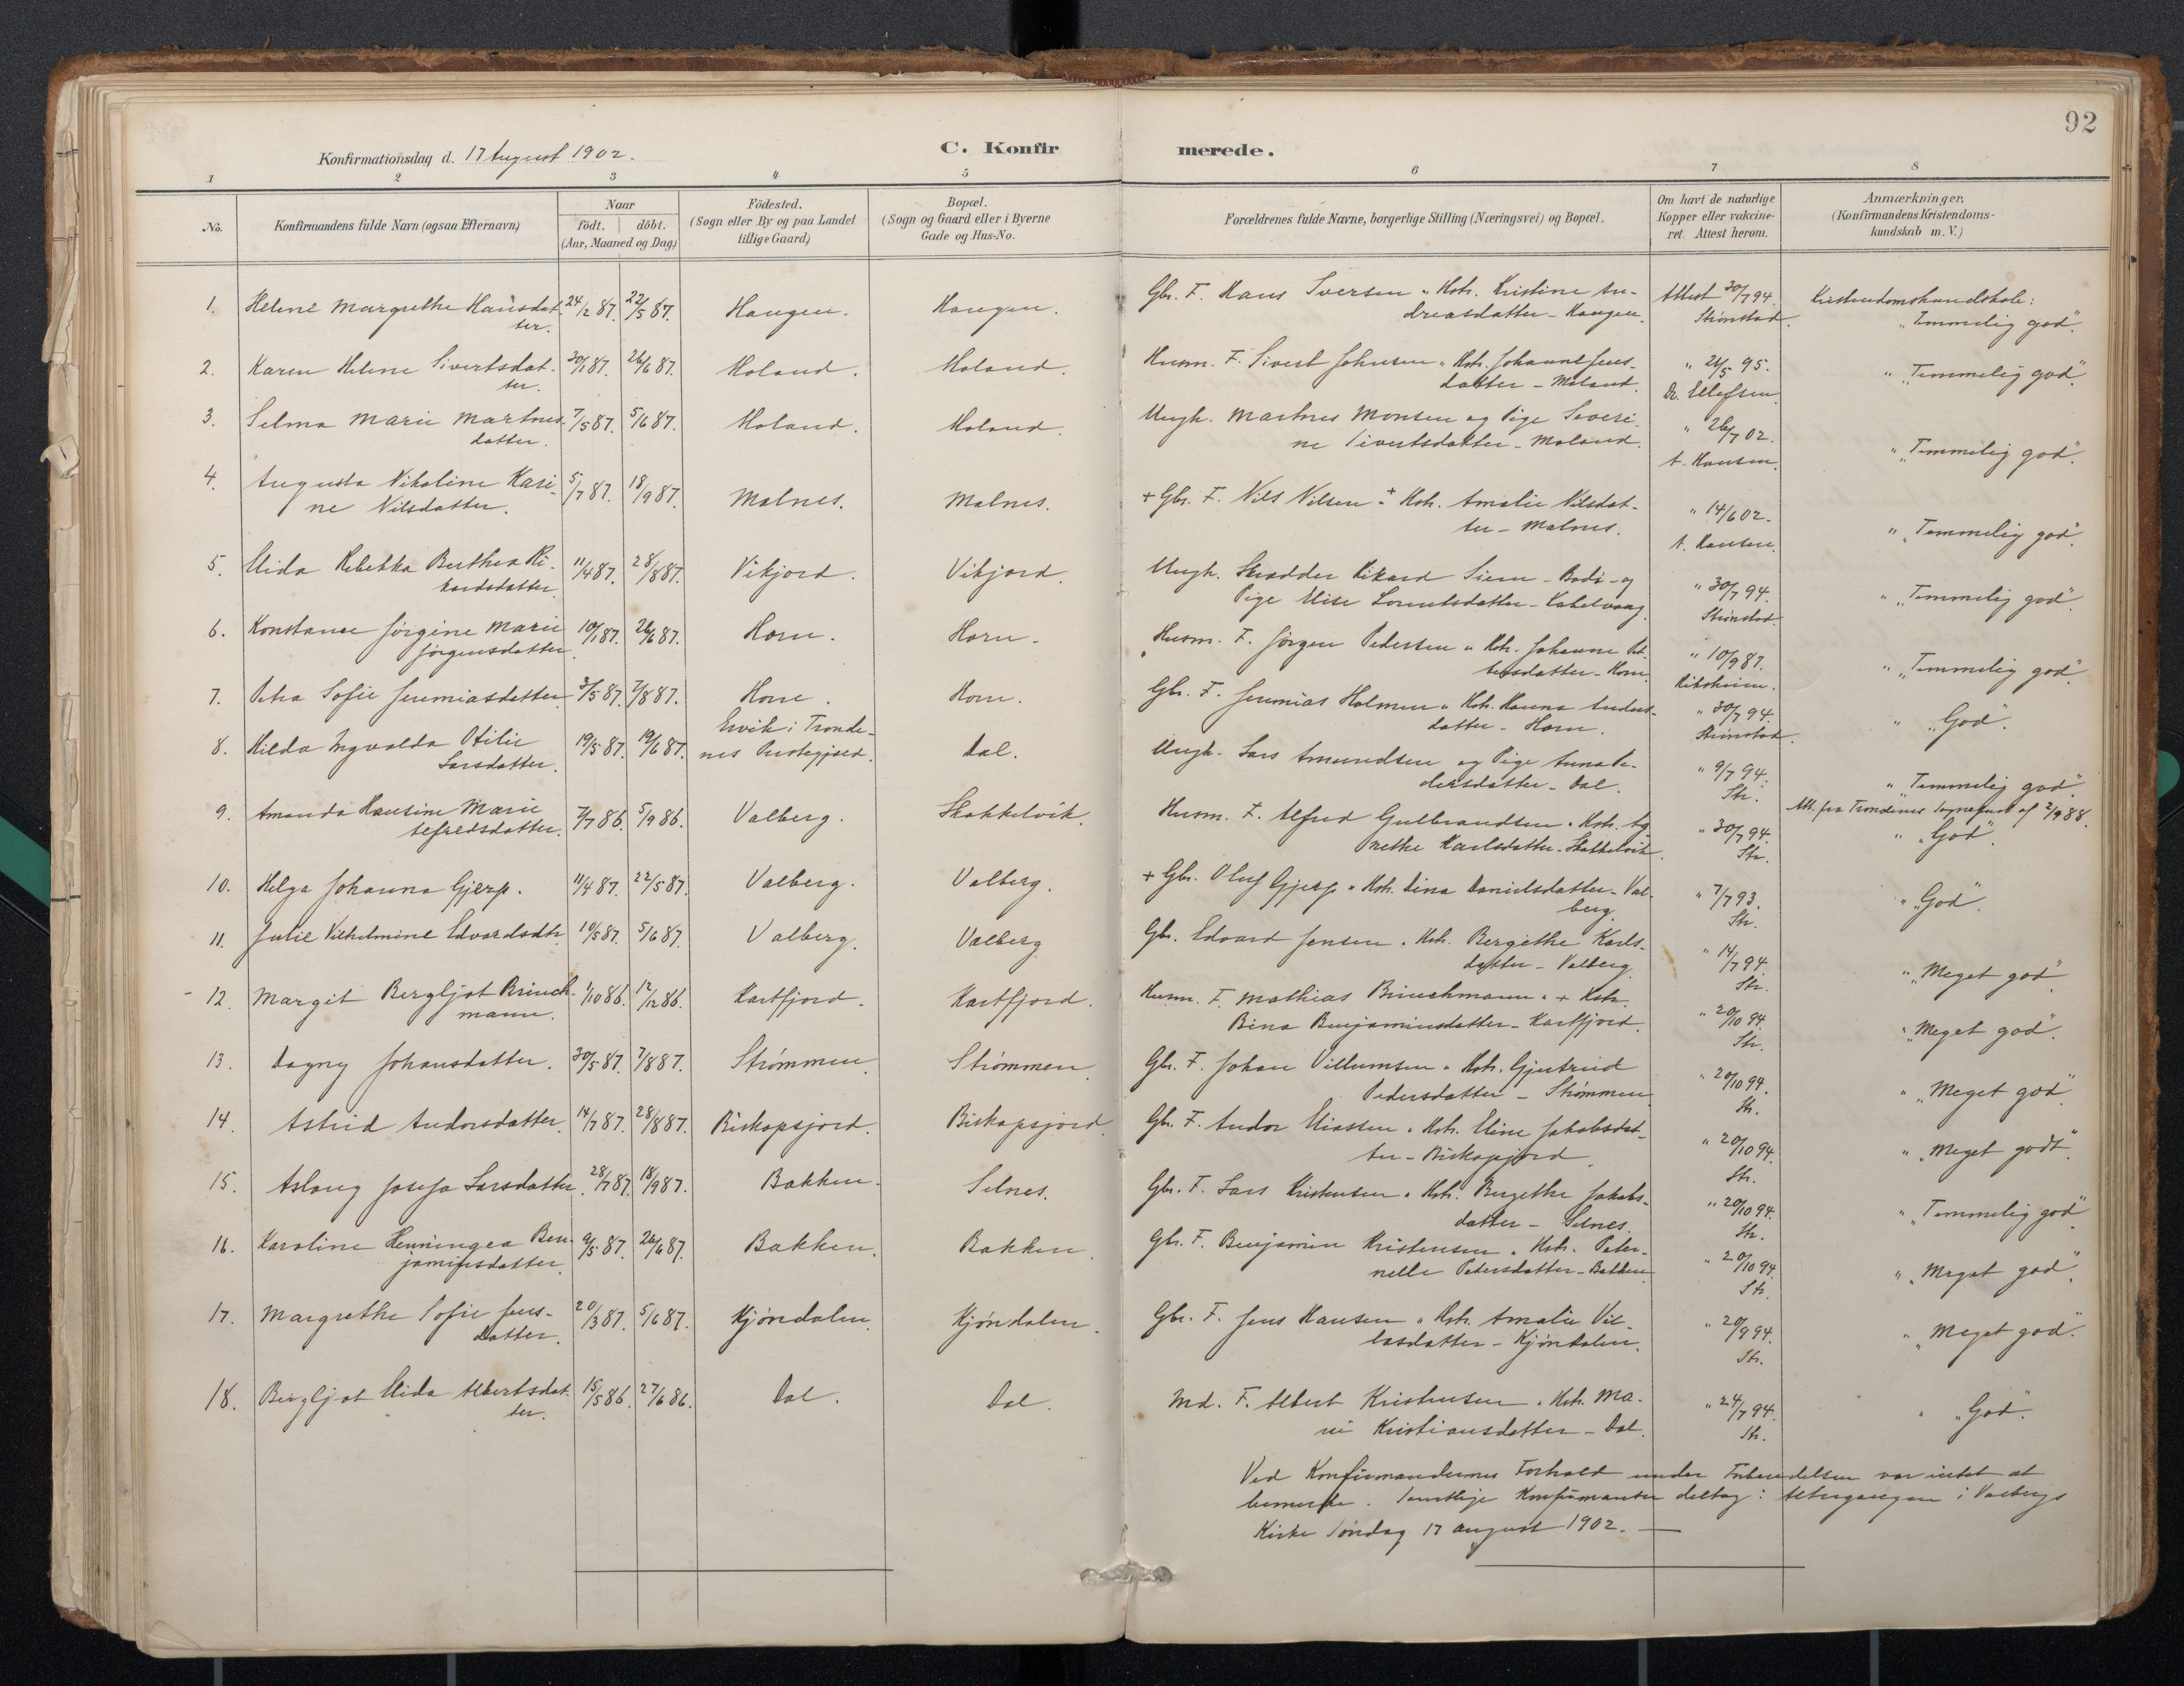 92
Konfirmationsdag d. 17 August 1902.
C. Konfirmerede.
1 2 3 4 5 6 7 8
No.
Konfirmandens fulde Navn (ogsaa Efternavn)
Naar
födt. döbt.
(Aar, Maaned og Dag)
Födested.
(Sogn eller By og paa Landet
tillige Gaard)
Bopæl.
(Sogn og Gaard eller i Byerne
Gade og Hus-No.
Forældrenes fulde Navne, borgerlige Stilling (Næringsvei) og Bopæl.
Om havt de naturlige
Kopper eller vakcine-
ret. Attest herom.
Anmærkninger.
(Konfirmandens Kristendoms-
kundskab m. V.)
1. Helene Margrethe Hansdat- 24/2 87. 22/5 87. Haugen. Haugen. Gbr. F. Hans Iversen " Hstr. Kristine An- Attest 30/7 94. Kristendomskundskab:
ter. dreasdatter - Haugen. Strønstad. "Temmelig god".
2. Karen Helene Sivertsdat- 30/1 87. 26/6 87. Holand. Holand. Husm. F. Sivert Johnsen " Hstr. Johanne Jens- " 21/5 95. " "Temmelig god".
ter. datter - Holand. Dr. Ellefsen.
3. Selma Marie Martnes- 7/5 87. 5/6 87. Holand. Holand. Ungk. Martnes Monsen og Pige Severi- " 26/7 02. " "Temmelig god".
datter. ne Sivertsdatter - Holand. A. Hansen.
4. Augusta Nikoline Kari- 5/7 87. 18/9 87. Malnes. Malnes. + Gbr. F. Nils Nilsen " + Hstr. Amalie Nilsdat- " 14/6 02. " "Temmelig god".
ne Nilsdatter. ter - Malnes. A. Hansen.
5. Elida Rebekka Berthea Ri- 11/4 87. 28/8 87. Vikjord. Vikjord. Ungk. Skrædder Rikard Siem - Bodø - og " 30/7 94. " "Temmelig god".
kardsdatter. Pige Elise Lorentsdatter - Kabelvaag. Strønstad.
6. Konstance Jørgine Marie 10/1 87. 26/6 87. Horn. Horn. Husm. F. Jørgen Pedersen " Hstr. Johanne Pet- " 10/9 87. " "Temmelig god".
Jørgensdatter. tersdatter - Horn.
7. Petra Sofie Jeremiasdatter 3/5 87. 7/8 87. Horn. Horn. Gbr. F. Jeremias Holmen " Hstr. Hanna Anders- " 30/7 94. " "God".
datter - Horn. Strønstad.
8. Hilda Ingvalda Otilie 19/5 87. 19/6 87. Ervik i Tronde- Dal. Ungk. Lars Amundsen og Pige Anna Pe- " 9/7 94. " "Temmelig god".
Larsdatter. nes Prestegjæld. dersdatter - Dal. Str. Att. fra Trondenes Sogneprest af 2/9 88.
9. Amanda Hansine Marie 7/7 86. 5/9 86. Valberg. Skakkelvik. Husm. F. Alfred Gulbrandsen " Hstr. Ag- " 30/7 94. " "God".
Alfredsdatter. nethe Karlsdatter - Skakkelvik. Str.
10. Helga Johanna Gjerp. 11/4 87. 22/5 87. Valberg. Valberg. + Gbr. Oluf Gjerp " Hstr. Dina Danielsdatter - Val- " 7/7 93. " "God".
berg. Str.
11. Julie Vilhelmine Edvardsdtr 10/5 87. 5/6 87. Valberg. Valberg Gbr. Edvard Jensen " Hstr. Bergethe Karls- " 14/7 94. " "Meget god".
datter - Valberg. Str.
12. Margit Bergljot Brinch- 1/10 86. 12/12 86. Hartfjord. Hartfjord. Husm. F. Mathias Brinchmann " + Hstr. " 20/10 94. " "Meget god".
mann. Bina Benjaminsdatter - Hartfjord. Str.
13. Dagny Johansdatter. 30/5 87. 7/8 87. Strømmen. Strømmen. Gbr. F. Johan Villumsen " Hstr. Gjertrud " 20/10 94. " "Meget god".
Pedersdatter - Strømmen Str.
14. Astrid Andorsdatter. 14/7 87. 28/8 87. Biskopsjord. Biskopsjord. Gbr. F. Andor Eliassen " Hstr. Eline Jakobsdat- " 20/10 94. " "Meget godt".
ter - Biskopsjord. Str.
15. Aslaug Josefa Larsdatter. 28/7 87. 18/9 87. Bakken. Selnes. Gbr. F. Lars Kristensen " Hstr. Bergethe Jakobs- " 20/10 94. " "Temmelig god".
datter - Selnes. Str.
16. Karoline Henningea Ben- 9/5 87. 26/6 87. Bakken. Bakken. Gbr. F. Benjamin Kristensen " Hstr. Peter- " 20/10 94. " "Meget god".
jaminsdatter. nelle Petersdatter - Bakken Str.
17. Margrethe Sofie Jens- 20/3 87. 5/6 87. Kjøndalen. Kjøndalen. Gbr. F. Jens Hansen " Hstr. Amalie " 20/9 94. " "Meget god".
datter. - Kjøndalen. Str.
18. Bergljot Elida Albertsdat- 15/5 86. 27/6 86. Dal. Dal. Md. F. Albert Kristensen " Hstr. Ma- " 24/7 94. " "God".
ter. rie Kristiansdatter - Dal. Str.
Ved Konfirmandernes Forhold under Forberedelsen var intet at
bemerke. Samtlige Konfirmanter deltog i Altergangen i Valbergs
Kirke Søndag 17 August 1902. —